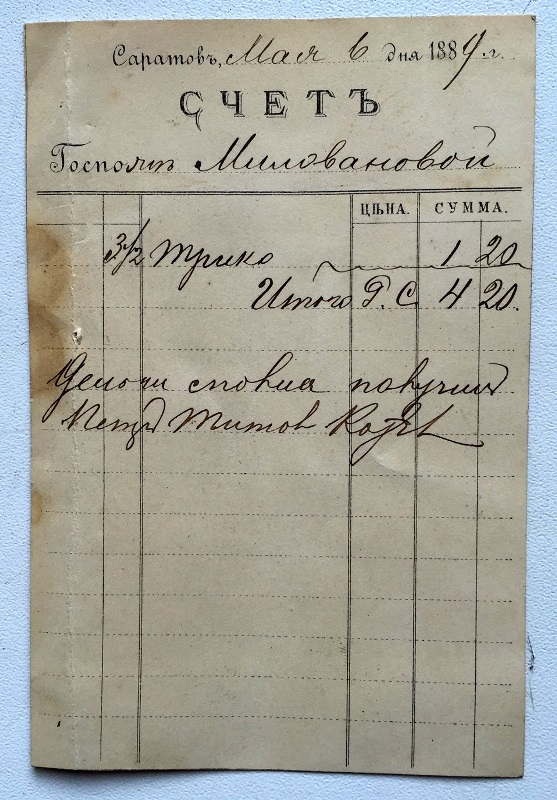 Саратовъ, Мая 6 дня 1884 г.
СЧЕТЪ
Госпожѣ Миловановой
ЦѢНА. СУММА.
3 1/2 трико 1 20
Итого Р. С 4 20.
Деньги сполна получилъ
Петръ Титов